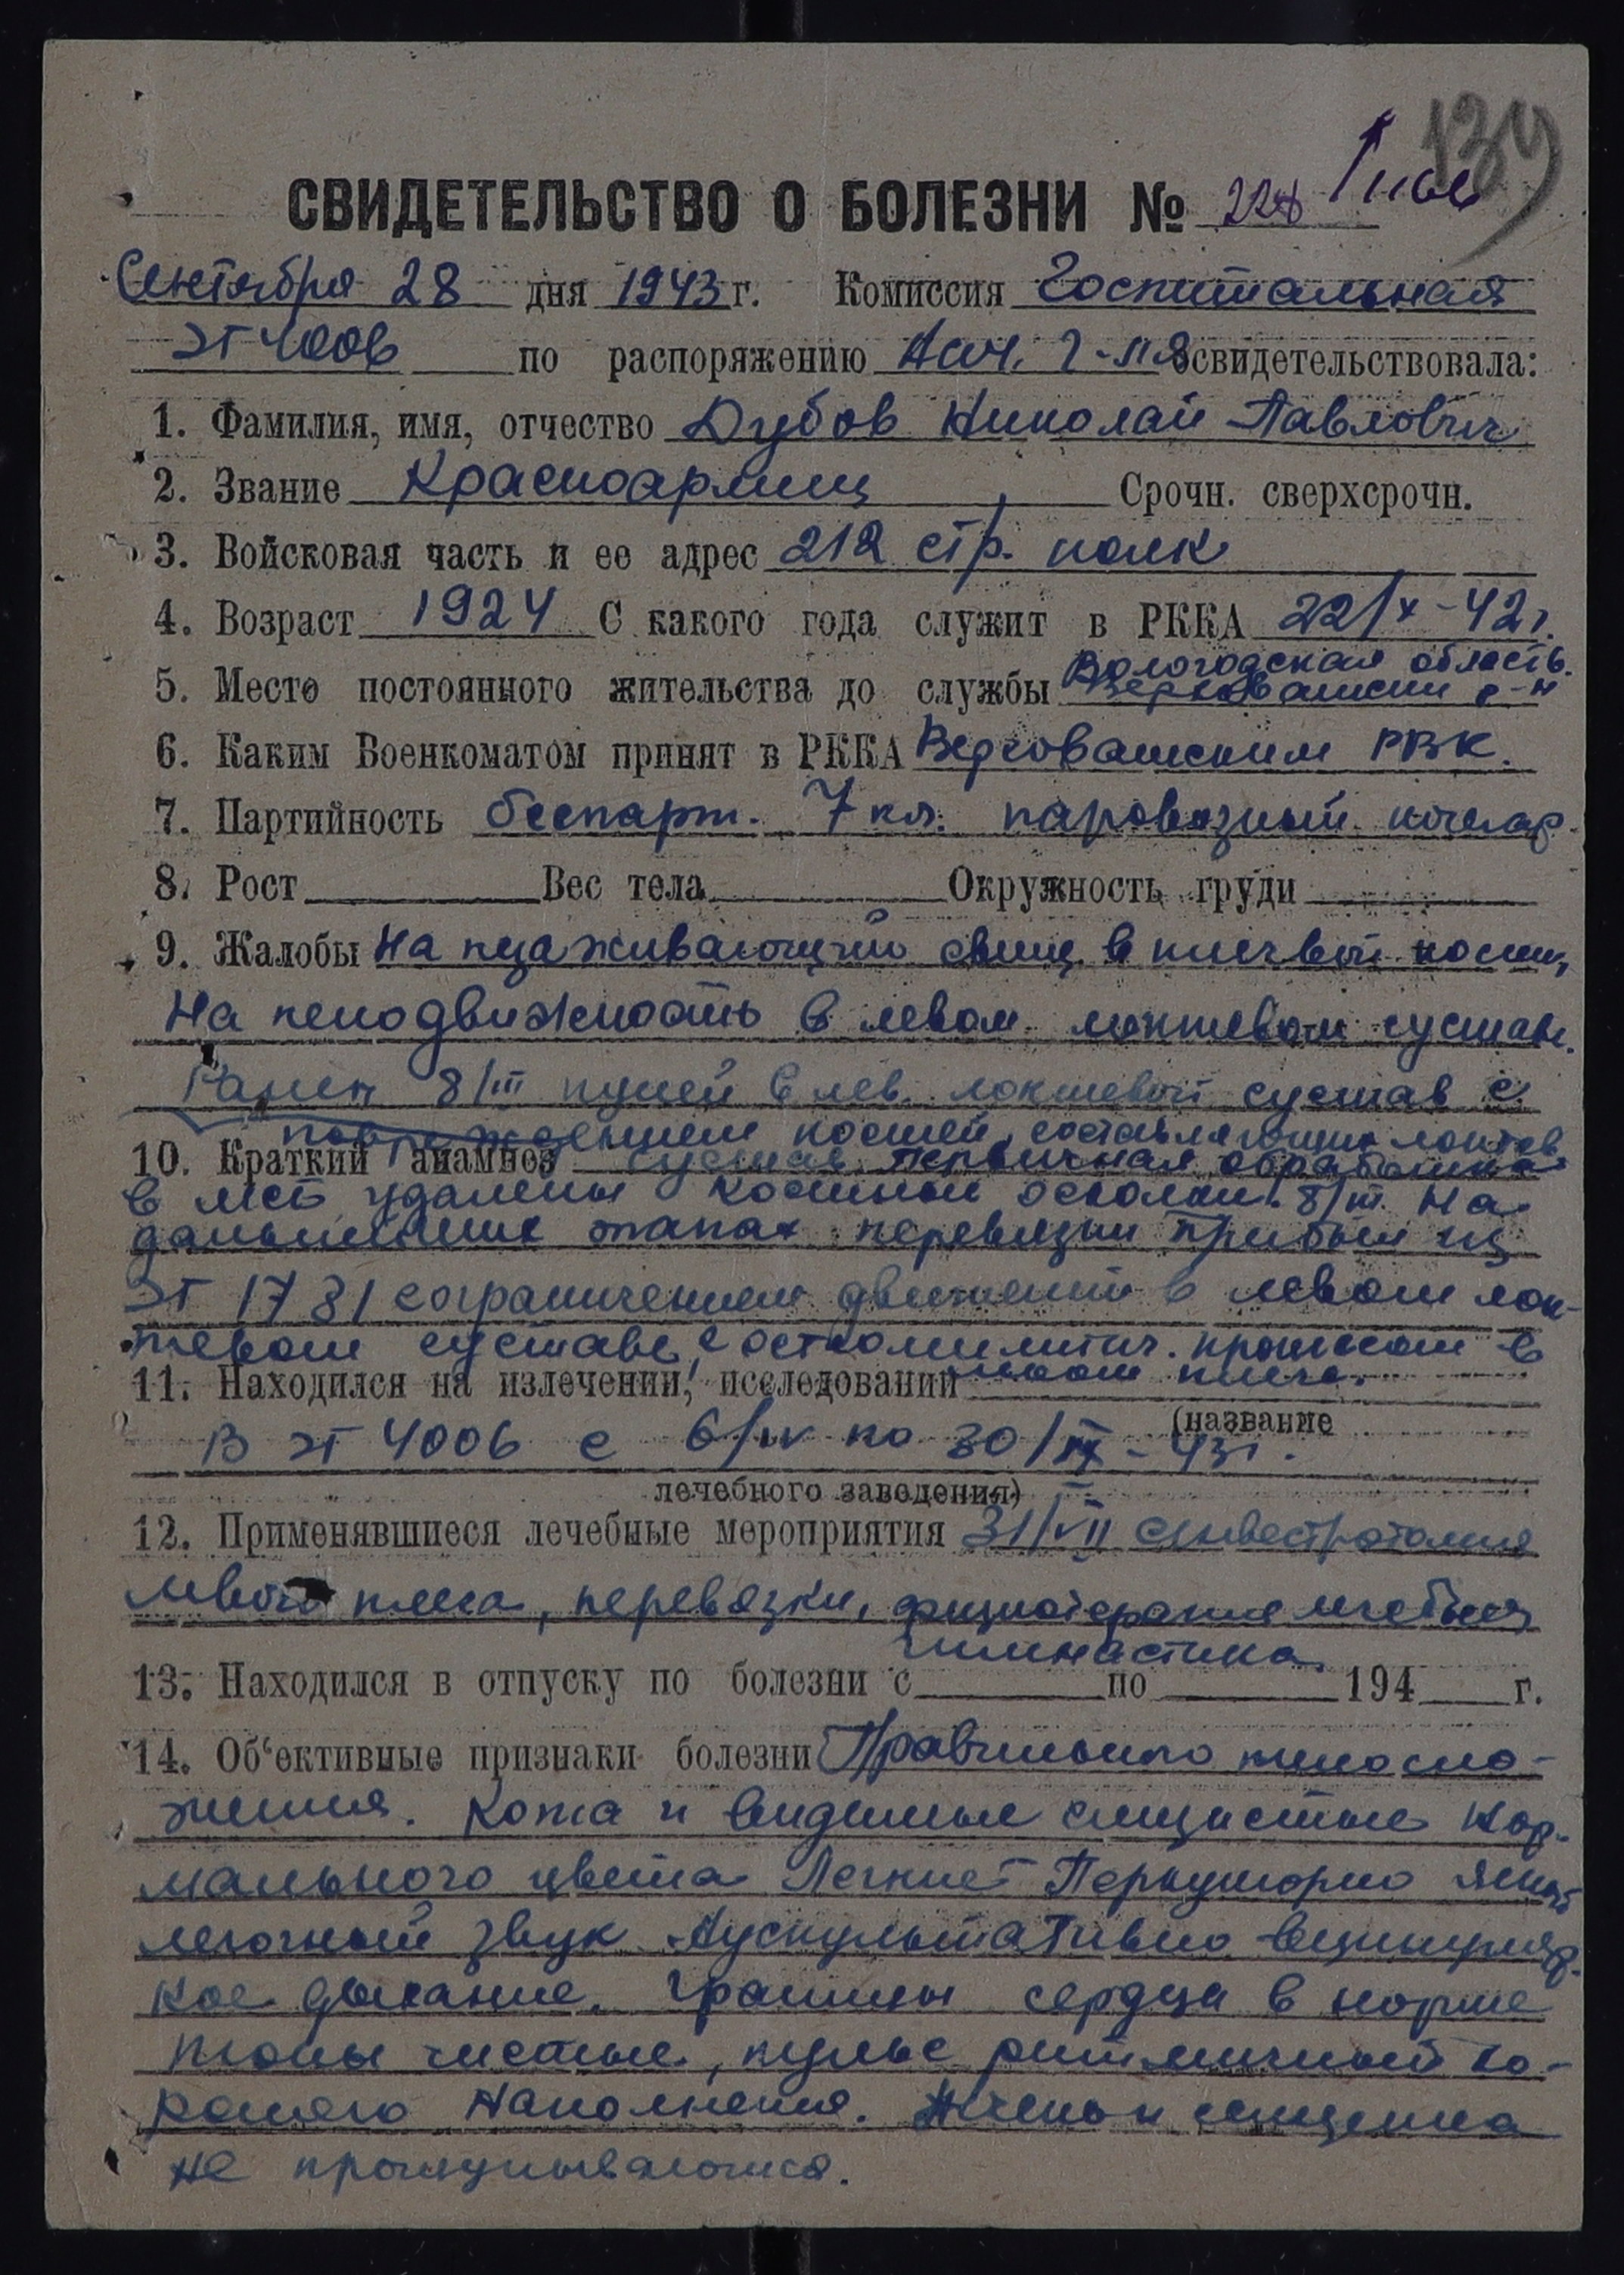 139
СВИДЕТЕЛЬСТВО О БОЛЕЗНИ № 228
Сентября 28 дня 1943 г. Комиссия Госпитальная
ЭГ 4006 по распоряжению Нач. Г-ля освидетельствовала:
1. Фамилия, имя, отчество Дубов Николай Павлович
2. Звание Красноармеец, Срочн. сверхсрочн.
3. Войсковая часть и ее адрес 212 стр. полк
4. Возраст 1924 С какого года служит в РККА 22/X-42г.
Вологодская область.
5. Место постоянного жительства до службы Верховажский р-н
6. Каким Военкоматом принят в РККА Верховажским РВК.
7. Партийность беспарт. 7 кл. паровозный кочегар
8. Рост Вес тела Окружность груди
9. Жалобы На незаживающий свищ в плечевой кости,
На неподвижность в левом локтевом суставе.
Ранен 8/III пулей в лев. локтевой сустав с
повреждением костей, составляющих локтев.
10. Краткий анамнез сустав. Первичная обработка
в мсб удалены костные осколки. 8/III. На
дальнейших этапах перевязки Прибыл из
ЭГ 1781 с ограничением движений в левом лок-
тевом суставе, с остеомиелитич. процессом в
11. Находился на излечении, исследовании левом плече.
(название
В ЭГ 4006 с 6/IV по 30/IX-43г.
лечебного заведения)
12. Применявшиеся лечебные мероприятия 31/VII секвестротомия
левого плеча, перевязки, физиотерапия лечебная
гимнастика.
13. Находился в отпуску по болезни с по 194 г.
14. Об'ективные признаки болезни Правильного телосло-
жения. Кожа и видимые слизистые нор-
мального цвета Легкие Перкуторно ясный
легочный звук Аускультативно везикуляр-
ное дыхание. Границы сердца в норме
тоны чистые, пульс ритмичный хо-
рошего наполнения. Печень и селезенка
не прощупываются.